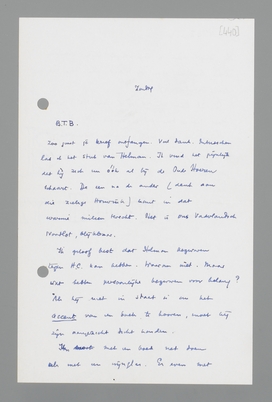 Zondag
B.T.B.
Zoo juist je brief ontvangen. Veel dank. Inmiddels
las ik het stuk van Helman. Ik vond het pijnlijk
dat hij zich nu óók al bij de Oude Heeren
schaart. De een na de ander (dank aan
die zielige Houwink) komt in dat
warme milieu terecht. Dat is ons Vaderlandsch
noodlot, blijkbaar.
Ik geloof best dat Helman bezwaren
tegen H.C. kan hebben. Waarom niet. Maar
wat hebben persoonlijke bezwaren voor belang?
Als hij niet in staat is om het
accent van een boek te hooren, moet hij
zijn mond dicht houden.
een boek net doen
als met een wijnglas. En even met